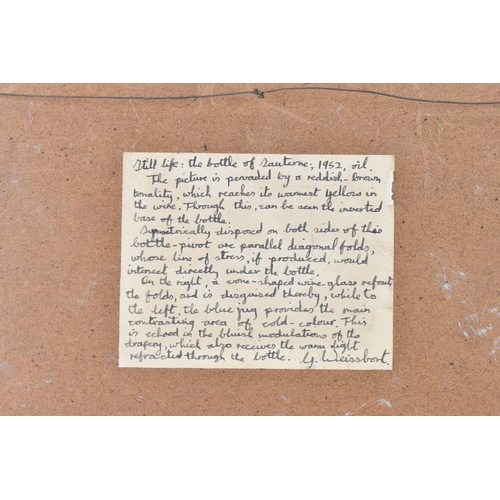 Still life: the bottle of Sauterne, 1952, oil.
The picture is pervaded by a reddish-brown
tonality, which reaches its warmest yellows in
the wine. Through this, can be seen the inverted
base of the bottle.
Symetrically disposed on both sides of this
bottle-pivot are parallel diagonal folds,
whose line of stress, if produced, would
intersect directly under the bottle.
On the right, a cone-shaped wine-glass refracts
the folds, and is disguised thereby, while to
the left, the blue jug provides the main
contrasting area of cold-colour. This
is echoed in the bluish modulations of the
drapery, which also receives the warm light
refracted through the bottle. G. Weissbort.